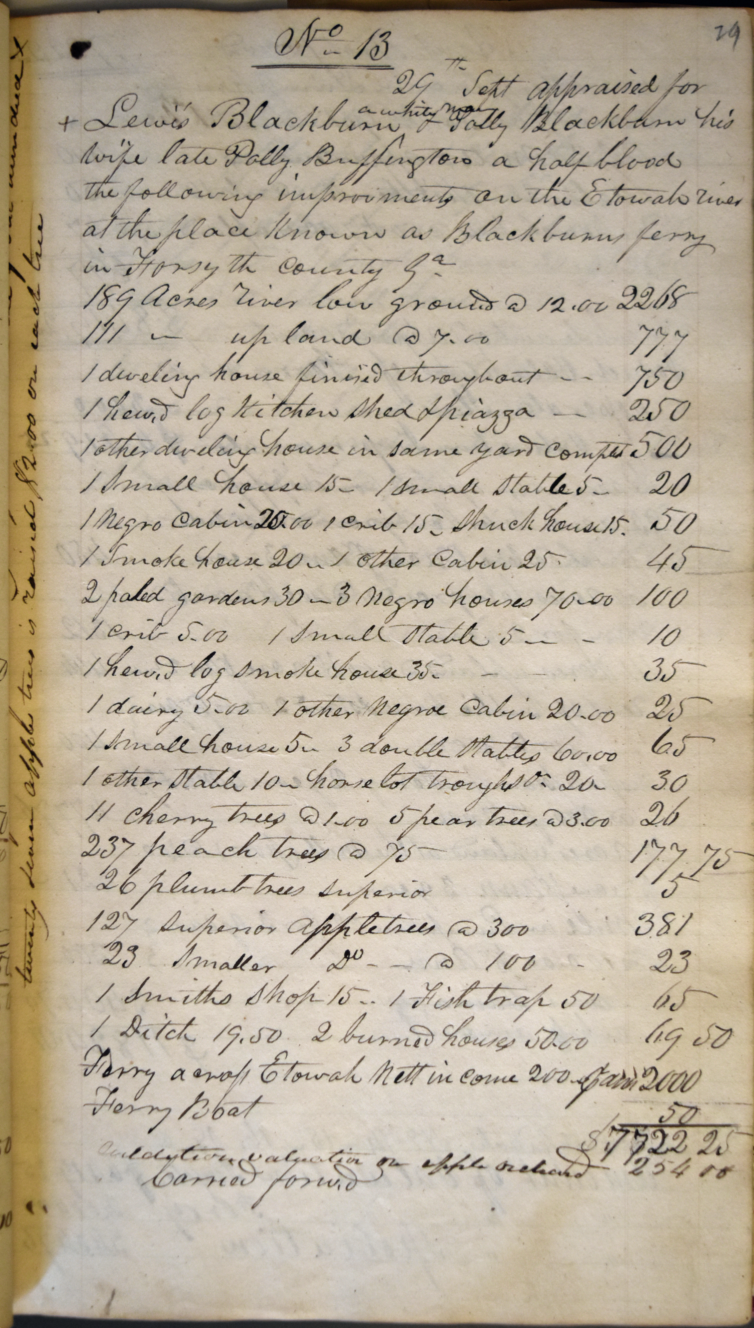 29
No 13
29th Sept appraised for
+ Lewis Blackburn a white man & Polly Blackburn his
wife late Polly Buffington a half blood
the following improvments on the Etowah river
at the place Known as Blackburns ferry
in Forsyth county Ga
189 Acres river low ground @ 12.00 2268
111 " up land @ 7.00 777
1 dweling house finised throughout -- 750
1 hewd log Kitchen shed & piazza -- 250
1 other dweling house in same yard complt 500
1 Small house 15- 1 small stable 5- 20
1 Negro Cabin 20.00 1 crib 15- Shuck house 15- 50
1 Smoke house 20- 1 other Cabin 25- 45
2 paled gardens 30- 3 Negro houses 70.00 100
1 crib 5.00 1 Small stable 5-- - 10
1 hewd log smoke house 35- - - 35
1 dairy 5.00 1 other Negroe Cabin 20.00 25
1 small house 5- 3 double stables 60.00 65
1 other stable 10- horse lot troughs &c 20- 30
11 cherry trees @ 1.00 5 pear trees @ 3.00 26
237 peach trees @ 75 177 75
26 plumb trees superior 5
127 superior appletrees @ 300 381
23 Smaller Do -- @ 100 - 23
1 Smiths shop 15-- 1 Fish trap 50 65
1 Ditch 19.50 2 burned houses 50.00 69 50
Ferry across Etowah Nett income 200 2000
Ferry Boat 50
$7722 25
valuation on apple orchard 254 00
Carried forwd
twenty seven apple trees is raised $2.00 on each tree